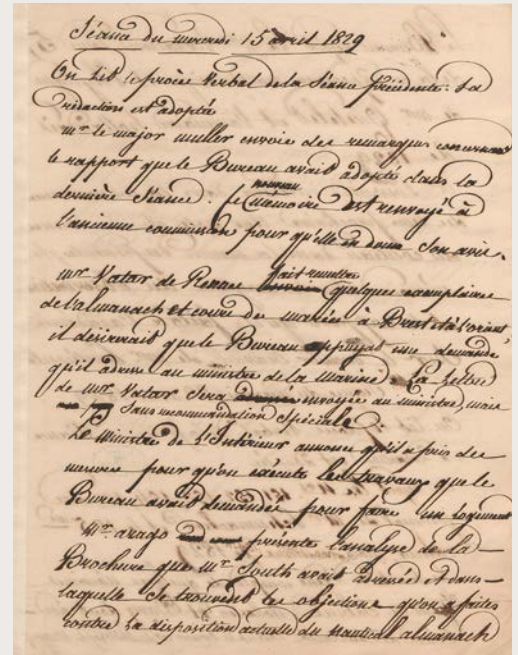 Séance du mercredi 15 avril 1829
On lit le procès verbal de la Séance précédente. La
rédaction est adoptée
mr le major muller envoie des remarques concernant
le rapport que le Bureau avait adopté dans la
dernière Séance. Ce nouveau mémoire est renvoyé à
l'ancienne commission pour qu'elle en donne Son avis.
mr Vatar de Rennes fait remettre quelques exemplaires
de l'almanach et cours des marées à Brest et à l'orient
il désirerait que le Bureau appuyat une demande
qu'il adresse au ministre de la marine. La Lettre
de mr Vatar Sera envoyée au ministre, mais
Sans recommandation Spéciale.
Le ministre de l'Intérieur annonce qu'il a pris des
mesures pour qu'on exécute les travaux que le
Bureau avait demandés pour faire un logement
Mr. arago présente l'analyse de la
Brochure que mr South avait adressée et dans
laquelle Se trouvent les objections qu'on a faites
contre La disposition actuelle du nautical almanach